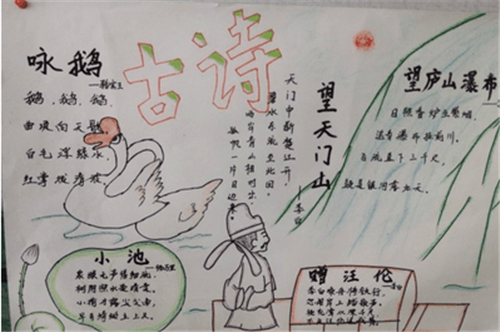 古诗
咏鹅
—骆宾王
鹅,鹅,鹅,
曲项向天歌
白毛浮绿水,
红掌拨清波
望天门山
—李白
天门中断楚江开,
碧水东流至此回
两岸青山相对出,
孤帆一片日边来。
望庐山瀑布
日照香炉生紫烟,
遥看瀑布挂前川,
飞流直下三千尺,
疑是银河落九天。
小池
—杨万里
泉眼无声惜细流,
树阴照水爱晴柔,
小荷才露尖尖角,
早有蜻蜓立上头。
赠汪伦
—李白
李白乘舟将欲行,
忽闻岸上踏歌声,
桃花潭水深千尺,
不及汪伦送我情